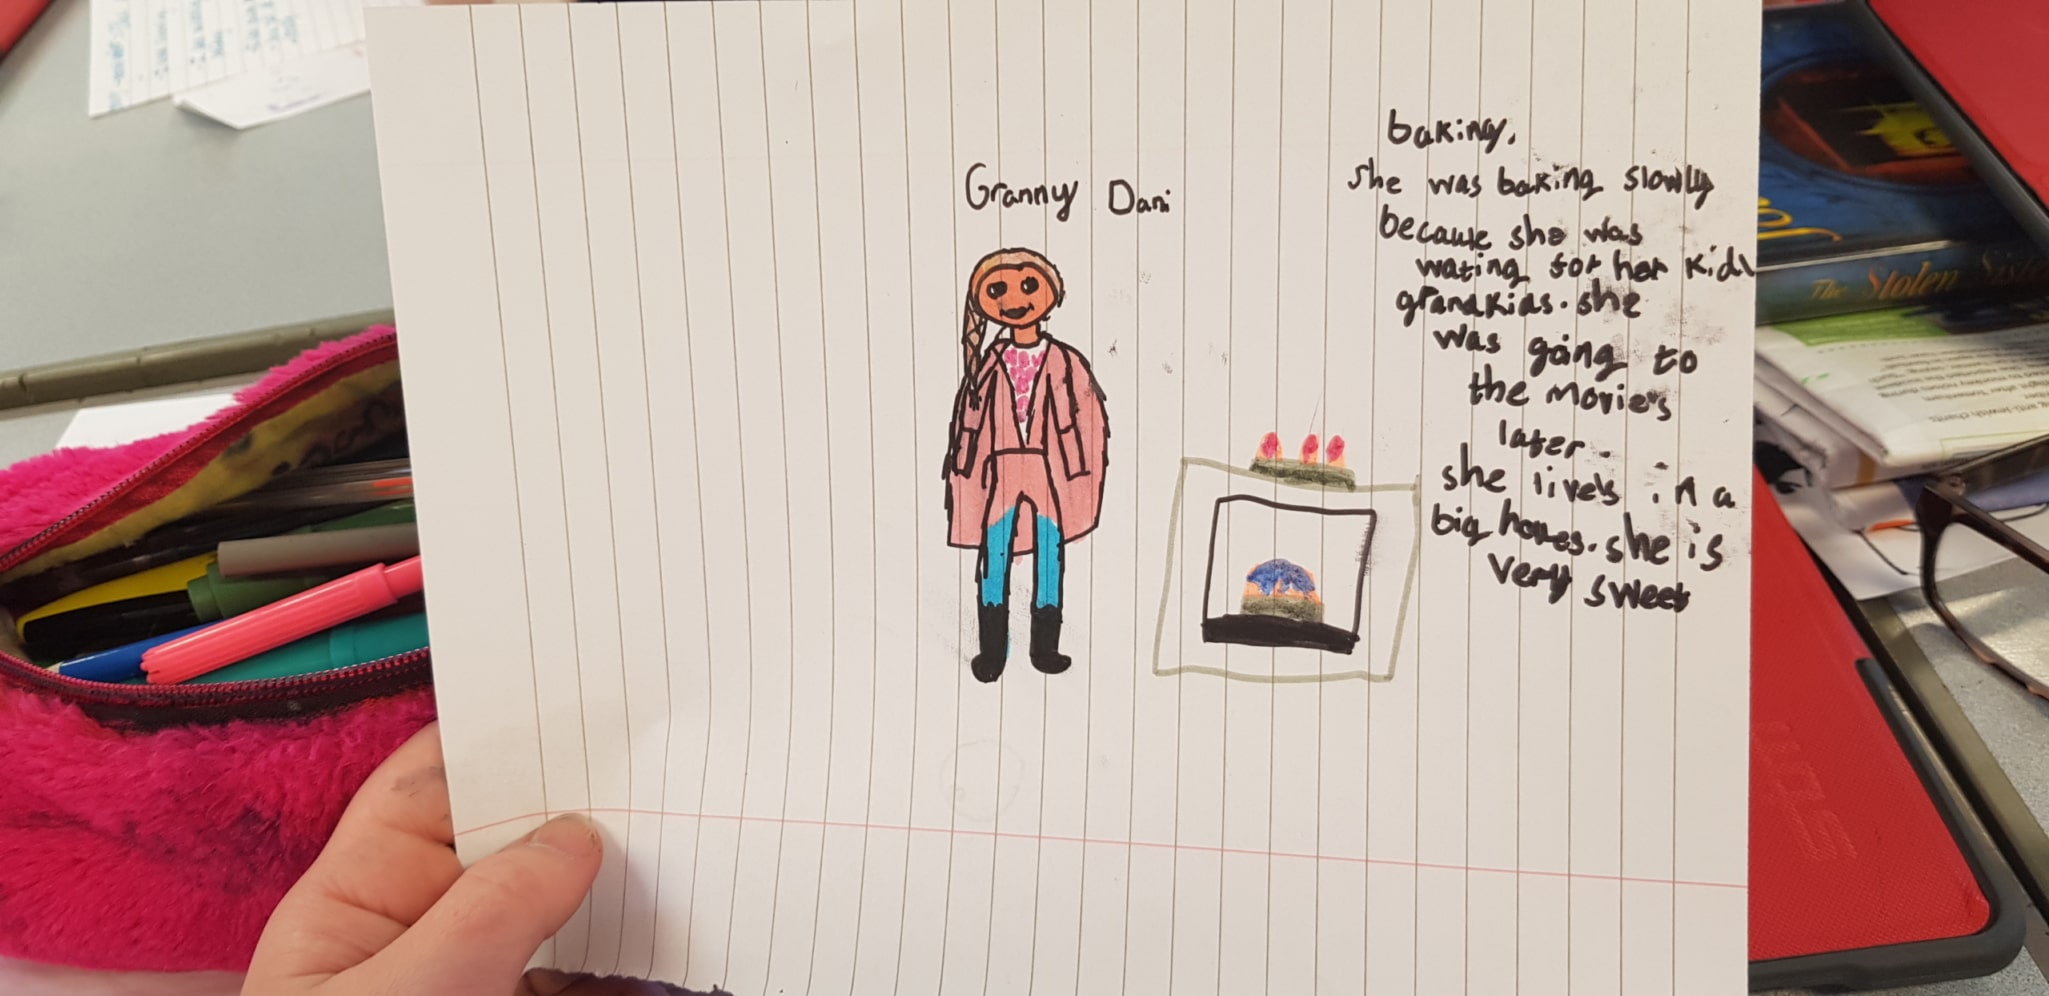 Granny Dani
baking,
She was baking slowly
because she was
wating for her kids
grandkids. she
was going to
the movies
later.
she lives in a
big houes. she is
very sweet
The Stolen